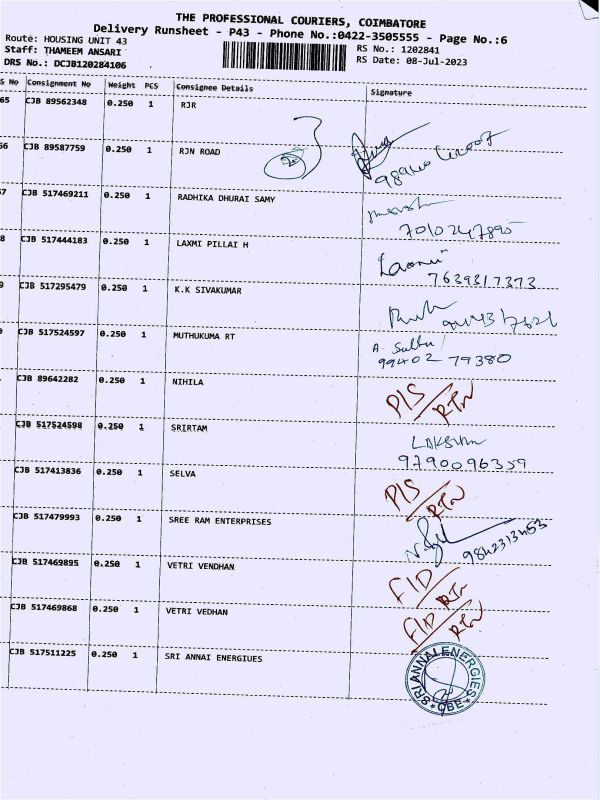 THE PROFESSIONAL COURIERS, COIMBATORE
Delivery Runsheet - P43 - Phone No.:0422-3505555 - Page No.:6
Route: HOUSING UNIT 43
RS No.: 1202841
Staff: THAMEEM ANSARI
RS Date: 08-Jul-2023
DRS No.: DCJB120284106
S No Consignment No Weight PCS Consignee Details Signature
65 CJB 89562348 0.250 1 RJR
66 CJB 89587759 0.250 1 RJN ROAD
67 CJB 517469211 0.250 1 RADHIKA DHURAI SAMY
7010247895
8 CJB 517444183 0.250 1 LAXMI PILLAI H
7639317373
9 CJB 517295479 0.250 1 K.K SIVAKUMAR
CJB 517524597 0.250 1 MUTHUKUMA RT
A. 
99402 79380
CJB 89642282 0.250 1 NIHILA
PIS/RTN
CJB 517524598 0.250 1 SRIRTAM
LAKSHM
9790096359
CJB 517413836 0.250 1 SELVA
PIS/RTN
CJB 517479993 0.250 1 SREE RAM ENTERPRISES
9842313453
CJB 517469895 0.250 1 VETRI VENDHAN
FID/RTN
CJB 517469868 0.250 1 VETRI VEDHAN
FID/RTN
CJB 517511225 0.250 1 SRI ANNAI ENERGIUES
SRI ANNAI ENERGIES
* CBE *